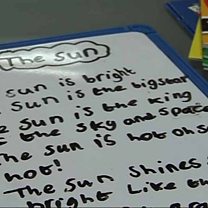 The sun
sun is bright
sun is the big star
sun is the king
the sky and space
sun is hot oh so
hot!
The sun shines
bright like the